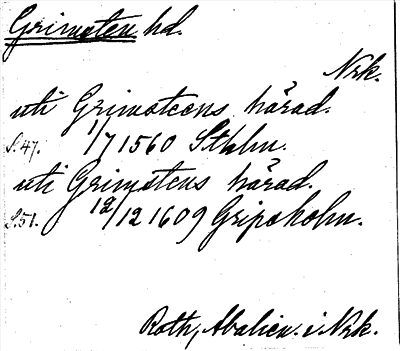 Grimsten hd.
Nrk.
uti Grimsteens härad.
S. 47. 1/7 1560 Sthlm.
uti Grimstens härad.
S. 51. 12/12 1609 Gripsholm.
Roth, Abalien. i Nrk.